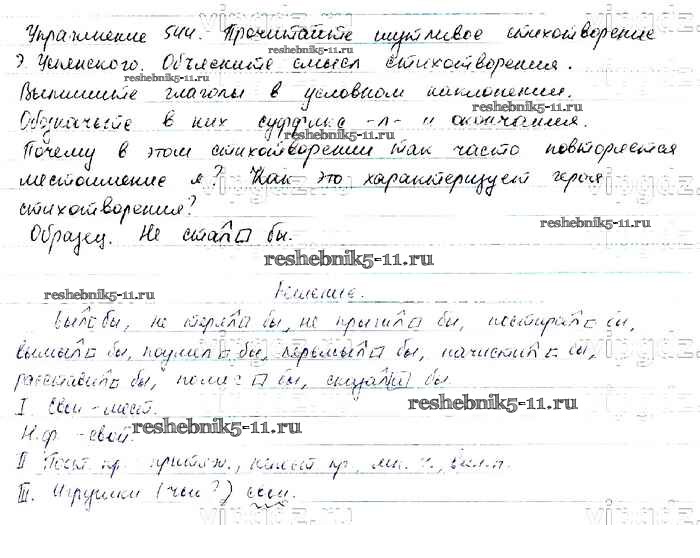 vipgdz.ru
Упражнение 544. Прочитайте шутливое стихотворение
reshebnik5-11.ru
Э. Успенского. Объясните смысл стихотворения.
Выпишите глаголы в условном наклонении.
reshebnik5-11.ru
Обозначьте в них суффикс -л- и окончания.
reshebnik5-11.ru
Почему в этом стихотворении так часто повторяется
местоимение я? Как это характеризует героя
стихотворения?
reshebnik5-11.ru
Образец. Не стал бы.
reshebnik5-11.ru
reshebnik5-11.ru
был бы, не терял бы, не бы, постирал бы,
вымыл бы, бы, бы, начистил бы,
расставил бы, бы, бы.
reshebnik5-11.ru
I. Свои - мест.
Н.ф. - свой.
reshebnik5-11.ru
II Пост. пр. притяж., непост. пр., мн. ч., вин.п.
III. Игрушки (чьи?) свои.
vipgdz.ru